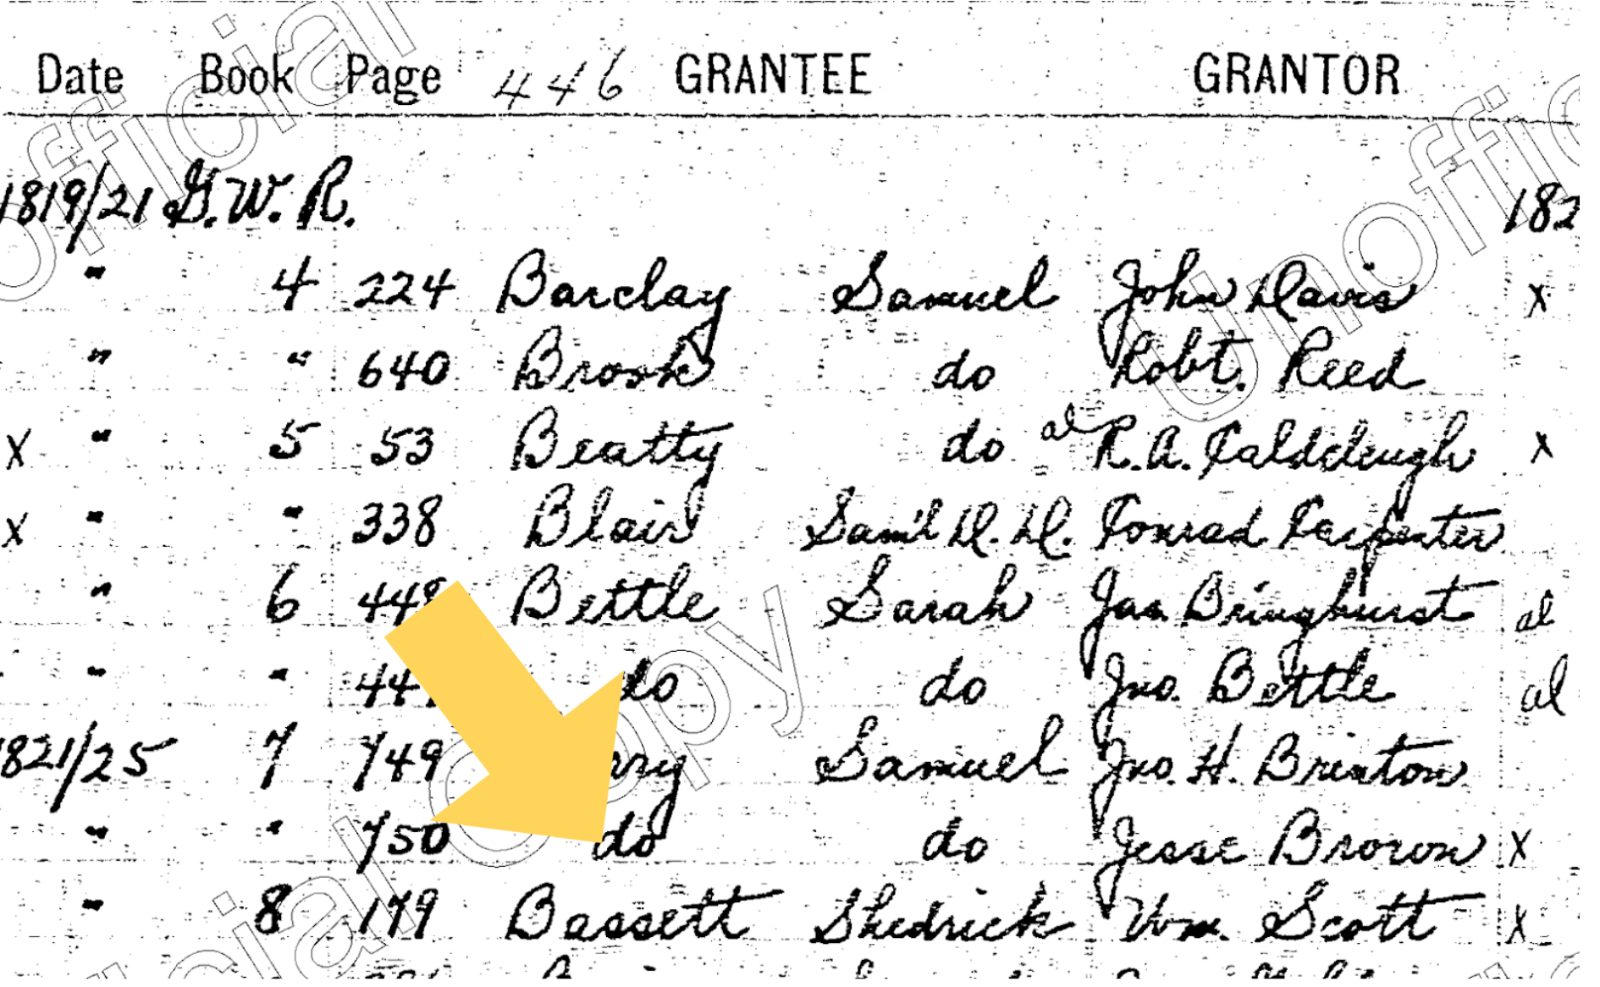 Date Book Page 446 GRANTEE GRANTOR
1819/21 G.W.R. 182
" 4 224 Barclay Samuel John Davis x
" " 640 Brook do Robt. Reed
x " 5 53 Beatty do al R.A. Caldcleugh x
x " " 338 Blair Sam'l D.D. Conrad Carpenter
" 6 448 Bettle Sarah Jas. Bringhurst al
" " do do Jno. Bettle al
1821/25 7 749 Samuel Jno. H. Brinton
" " 750 do do Jesse Brown x
" 8 179 Bassett Shedrick Wm. Scott x
Unofficial Copy